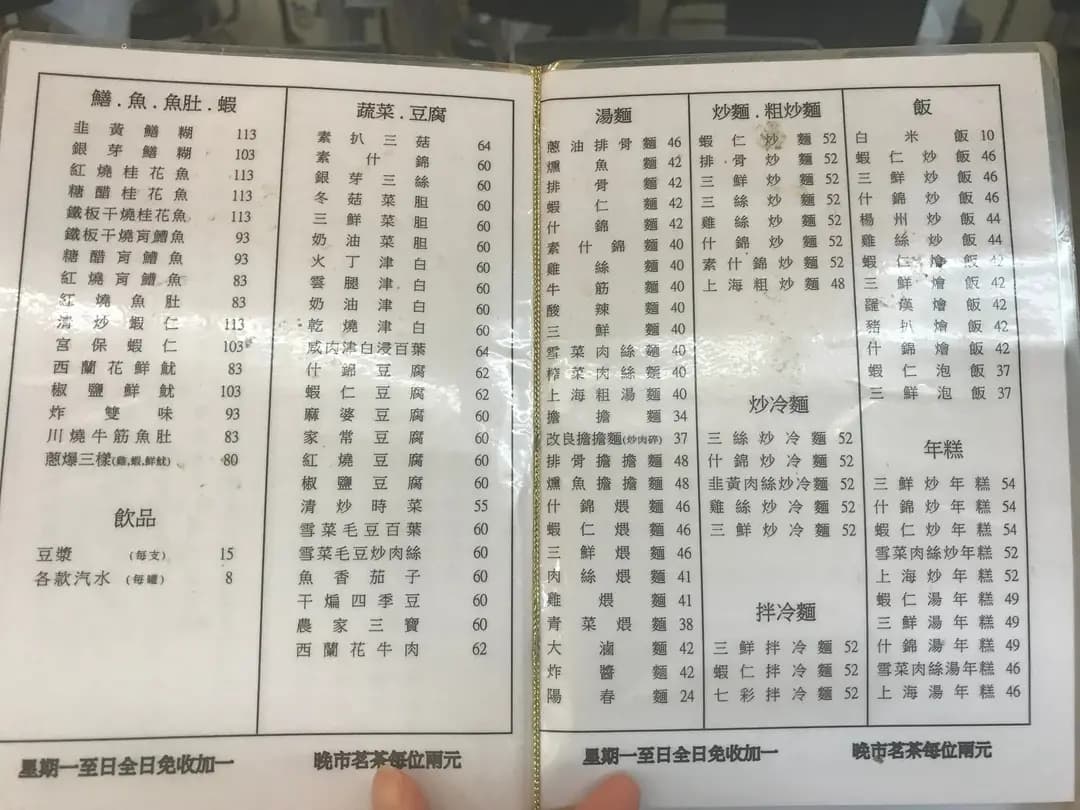 鱔.魚.魚肚.蝦
韭黃鱔糊 113
銀芽鱔糊 103
紅燒桂花魚 113
糖醋桂花魚 113
鐵板干燒桂花魚 113
鐵板干燒肓鰽魚 93
糖醋肓鰽魚 93
紅燒肓鰽魚 83
紅燒魚肚 83
清炒蝦仁 113
宮保蝦仁 103
西蘭花鮮魷 83
椒鹽鮮魷 103
炸雙味 93
川燒牛筋魚肚 83
蔥爆三樣(雞,蝦,鮮魷) 80
飲品
豆漿 (每支) 15
各款汽水 (每罐) 8
蔬菜.豆腐
素扒三菇 64
素什錦 60
銀芽三絲 60
冬菇菜胆 60
三鮮菜胆 60
奶油菜胆 60
火丁津白 60
雲腿津白 60
奶油津白 60
乾燒津白 60
咸肉津白浸百葉 64
什錦豆腐 62
蝦仁豆腐 62
麻婆豆腐 60
家常豆腐 60
紅燒豆腐 60
椒鹽豆腐 60
清炒時菜 55
雪菜毛豆百葉 60
雪菜毛豆炒肉絲 60
魚香茄子 60
干煸四季豆 60
農家三寶 60
西蘭花牛肉 62
星期一至日全日免收加一
晚市茗茶每位兩元
湯麵
蔥油排骨麵 46
燻魚麵 42
排骨麵 42
蝦仁麵 42
什錦麵 42
素什錦麵 40
雞絲麵 40
牛筋麵 40
酸辣麵 40
三鮮麵 40
雪菜肉絲麵 40
榨菜肉絲麵 40
上海粗湯麵 40
擔擔麵 34
改良擔擔麵(炒肉碎) 37
排骨擔擔麵 48
燻魚擔擔麵 48
什錦煨麵 46
蝦仁煨麵 46
三鮮煨麵 46
肉絲煨麵 41
雞煨麵 41
青菜煨麵 38
大滷麵 42
炸醬麵 42
陽春麵 24
炒麵.粗炒麵
蝦仁炒麵 52
排骨炒麵 52
三鮮炒麵 52
三絲炒麵 52
雞絲炒麵 52
什錦炒麵 52
素什錦炒麵 52
上海粗炒麵 48
炒冷麵
三絲炒冷麵 52
什錦炒冷麵 52
韭黃肉絲炒冷麵 52
雞絲炒冷麵 52
三鮮炒冷麵 52
拌冷麵
三鮮拌冷麵 52
蝦仁拌冷麵 52
七彩拌冷麵 52
飯
白米飯 10
蝦仁炒飯 46
三鮮炒飯 46
什錦炒飯 46
楊州炒飯 44
雞絲炒飯 44
蝦仁燴飯 42
三鮮燴飯 42
羅漢燴飯 42
豬扒燴飯 42
什錦燴飯 42
蝦仁泡飯 37
三鮮泡飯 37
年糕
三鮮炒年糕 54
什錦炒年糕 54
蝦仁炒年糕 54
雪菜肉絲炒年糕 52
上海炒年糕 52
蝦仁湯年糕 49
三鮮湯年糕 49
什錦湯年糕 49
雪菜肉絲湯年糕 46
上海湯年糕 46
星期一至日全日免收加一
晚市茗茶每位兩元